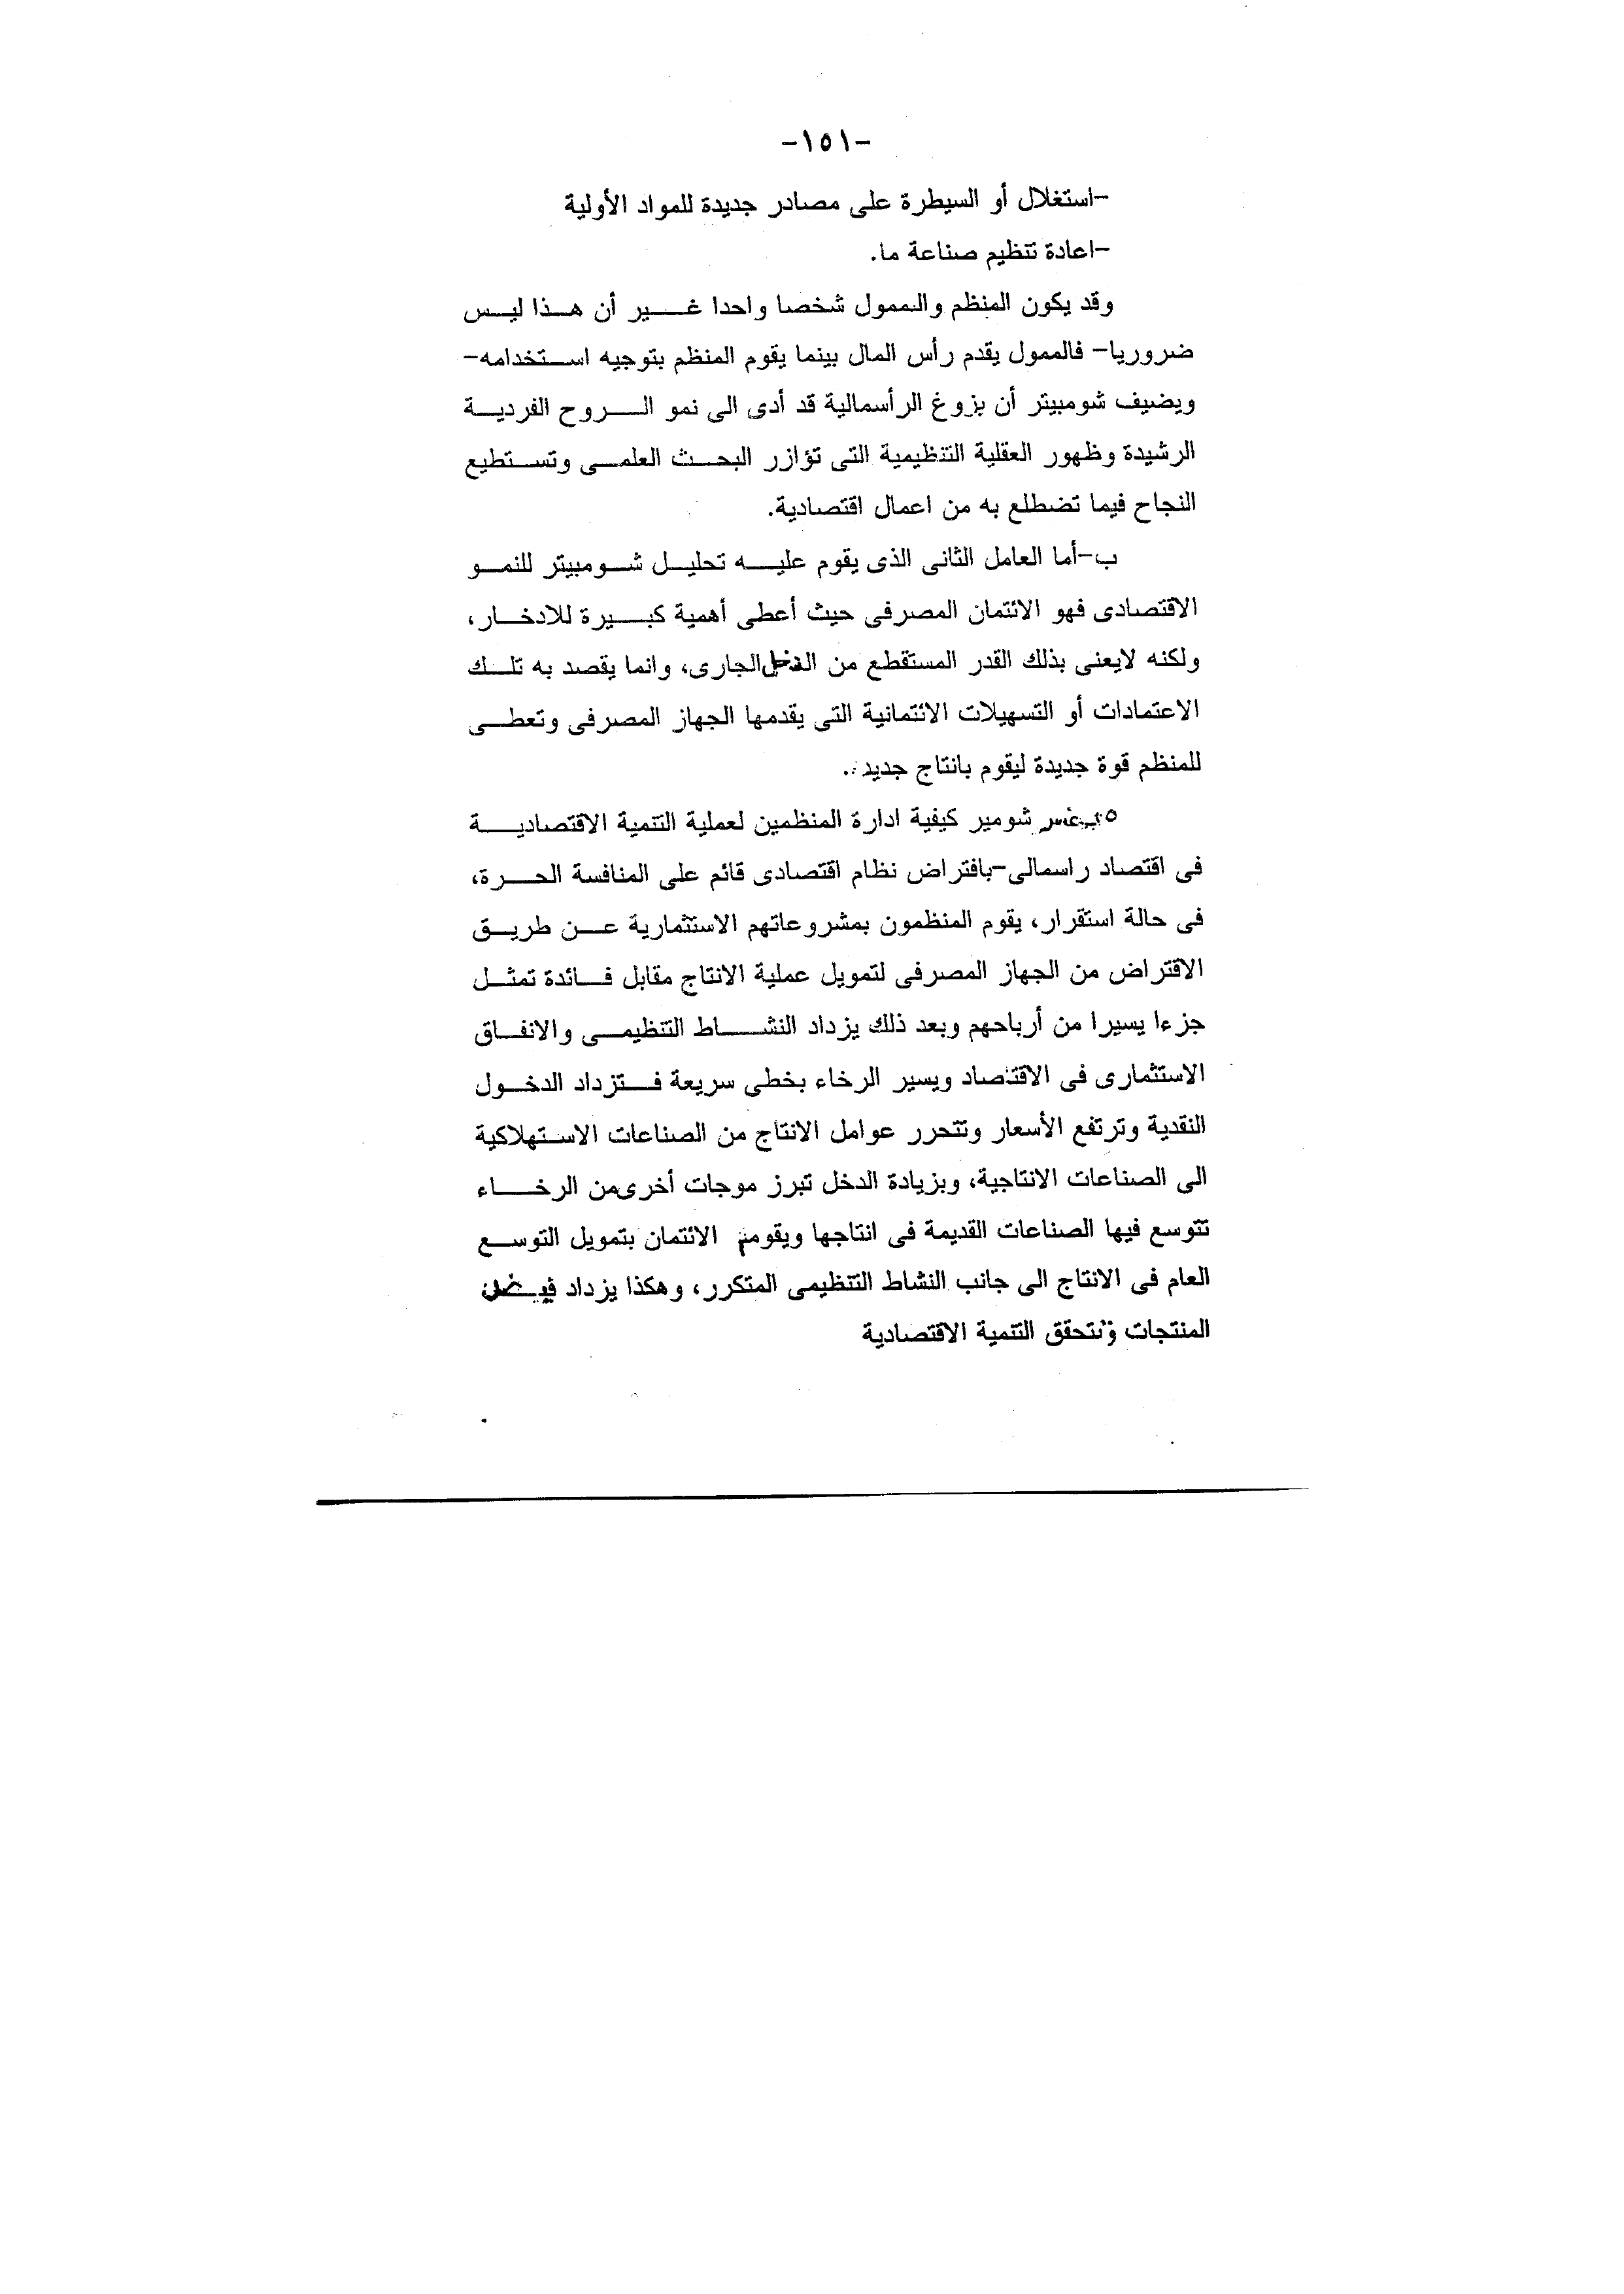 -١٥١-
-استغلال أو السيطرة على مصادر جديدة للمواد الأولية
-اعادة تنظيم صناعة ما.
وقد يكون المنظم والممول شخصا واحدا غير أن هذا ليس
ضروريا- فالممول يقدم رأس المال بينما يقوم المنظم بتوجيه استخدامه-
ويضيف شومبيتر أن بزوغ الرأسمالية قد أدى الى نمو الروح الفردية
الرشيدة وظهور العقلية التنظيمية التى تؤازر البحث العلمى وتستطيع
النجاح فيما تضطلع به من اعمال اقتصادية.
ب-أما العامل الثانى الذى يقوم عليه تحليل شومبيتر للنمو
الاقتصادى فهو الائتمان المصرفى حيث أعطى أهمية كبيرة للادخار،
ولكنه لايعنى بذلك القدر المستقطع من الدخل الجارى، وانما يقصد به تلك
الاعتمادات أو التسهيلات الائتمانية التى يقدمها الجهاز المصرفى وتعطى
للمنظم قوة جديدة ليقوم بانتاج جديد.
شومير كيفية ادارة المنظمين لعملية التنمية الاقتصادية
فى اقتصاد راسمالى-بافتراض نظام اقتصادى قائم على المنافسة الحرة،
فى حالة استقرار، يقوم المنظمون بمشروعاتهم الاستثمارية عن طريق
الاقتراض من الجهاز المصرفى لتمويل عملية الانتاج مقابل فائدة تمثل
جزءا يسيرا من أرباحهم وبعد ذلك يزداد النشاط التنظيمى والانفاق
الاستثمارى فى الاقتصاد ويسير الرخاء بخطى سريعة فتزداد الدخول
النقدية وترتفع الأسعار وتتحرر عوامل الانتاج من الصناعات الاستهلاكية
الى الصناعات الانتاجية، وبزيادة الدخل تبرز موجات أخرى من الرخاء
تتوسع فيها الصناعات القديمة فى انتاجها ويقوم الائتمان بتمويل التوسع
العام فى الانتاج الى جانب النشاط التنظيمى المتكرر، وهكذا يزداد فيض
المنتجات وتتحقق التنمية الاقتصادية